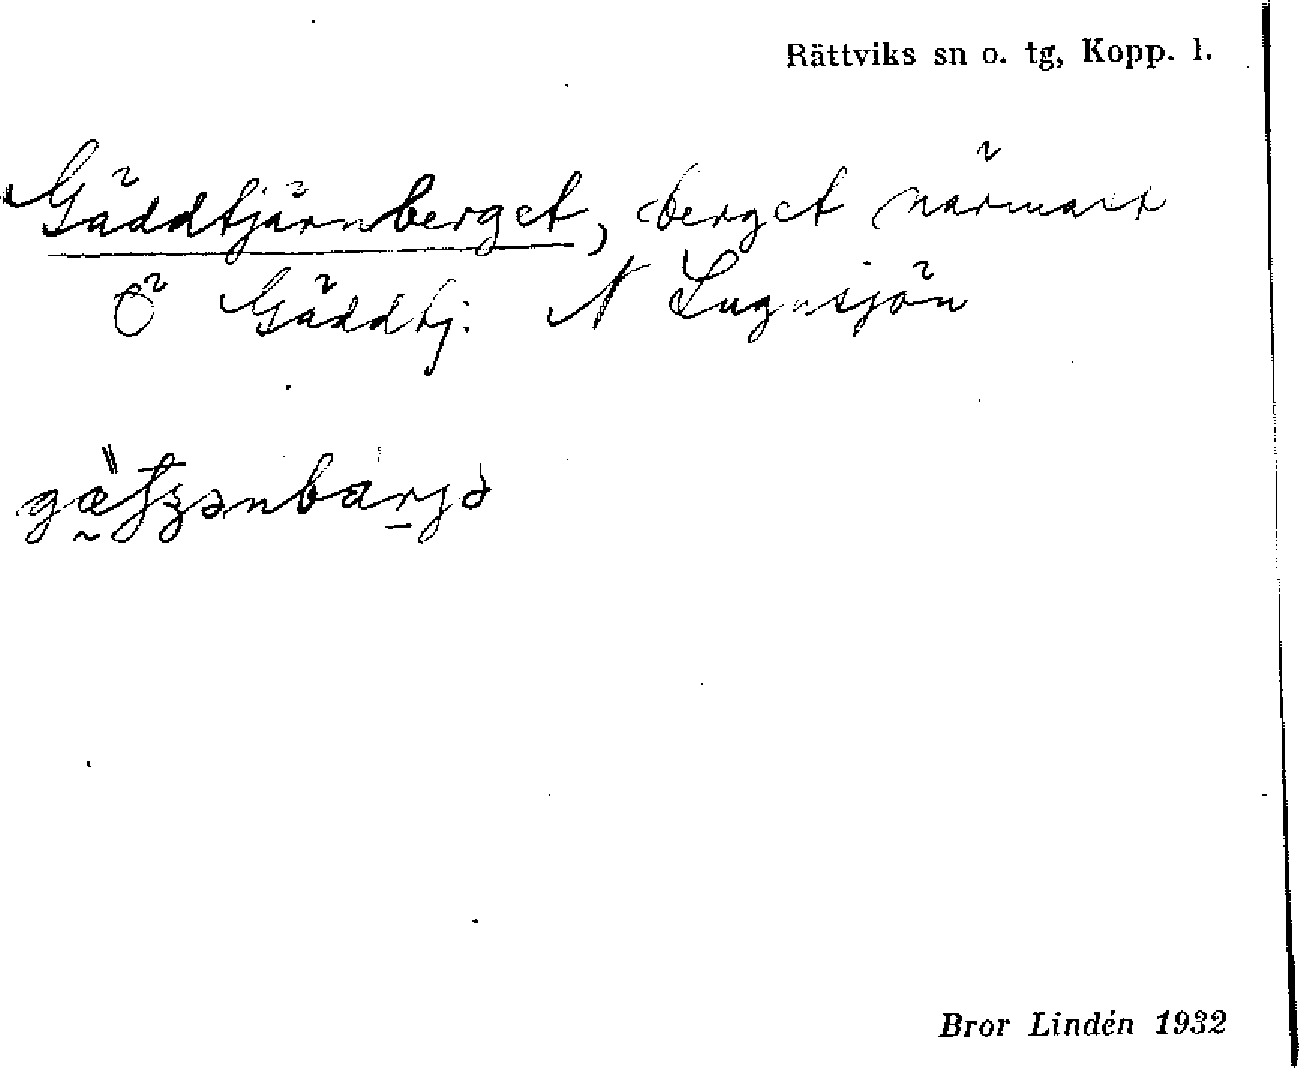 Rättviks sn o. tg, Kopp. l.
Gäddtjärnberget, berget närmast
Ö Gäddtj. N Lugnsjön
Bror Lindén 1932